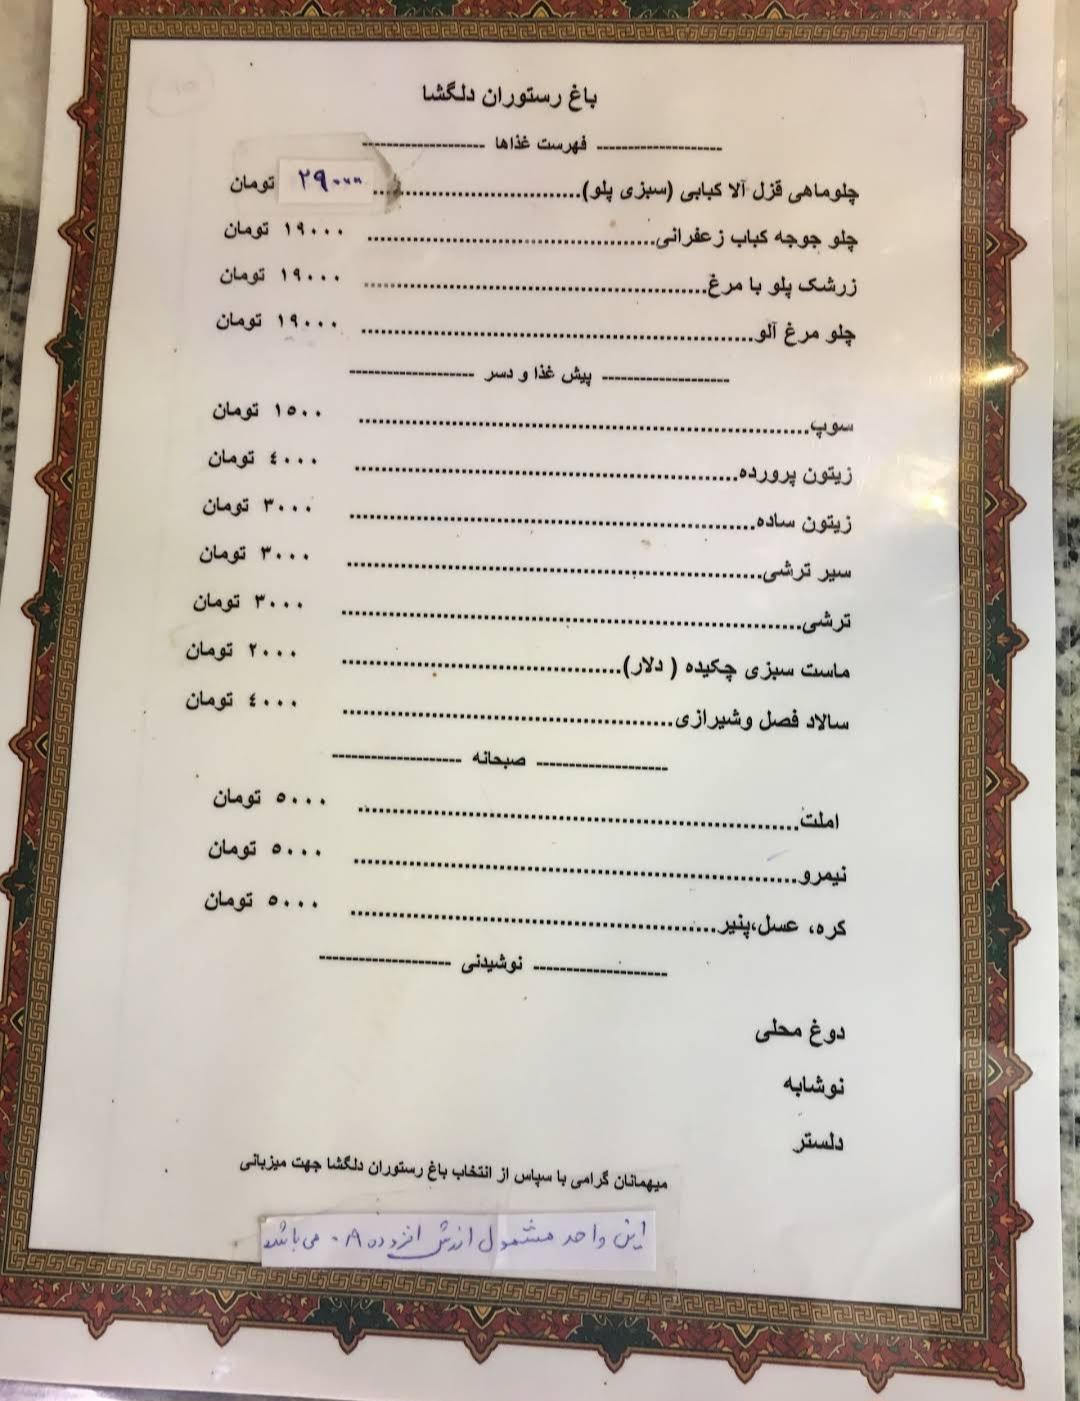 باغ رستوران دلگشا
-------------------- فهرست غذاها --------------------
چلوماهی قزل آلا کبابی (سبزی پلو)................................ ۲۹۰۰۰ تومان
چلو جوجه کباب زعفرانی................................ ۱۹۰۰۰ تومان
زرشک پلو با مرغ................................ ۱۹۰۰۰ تومان
چلو مرغ آلو................................ ۱۹۰۰۰ تومان
-------------------- پیش غذا و دسر --------------------
سوپ................................ ۱۵۰۰ تومان
زیتون پرورده................................ ٤۰۰۰ تومان
زیتون ساده................................ ۳۰۰۰ تومان
سیر ترشی................................ ۳۰۰۰ تومان
ترشی................................ ۳۰۰۰ تومان
ماست سبزی چکیده ( دلار)................................ ۲۰۰۰ تومان
سالاد فصل وشیرازی................................ ٤۰۰۰ تومان
-------------------- صبحانه --------------------
املت................................ ۵۰۰۰ تومان
نیمرو................................ ۵۰۰۰ تومان
کره، عسل،پنیر................................ ۵۰۰۰ تومان
-------------------- نوشیدنی --------------------
دوغ محلی
نوشابه
دلستر
میهمانان گرامی با سپاس از انتخاب باغ رستوران دلگشا جهت میزبانی
این واحد مشمول ارزش افزوده می باشد